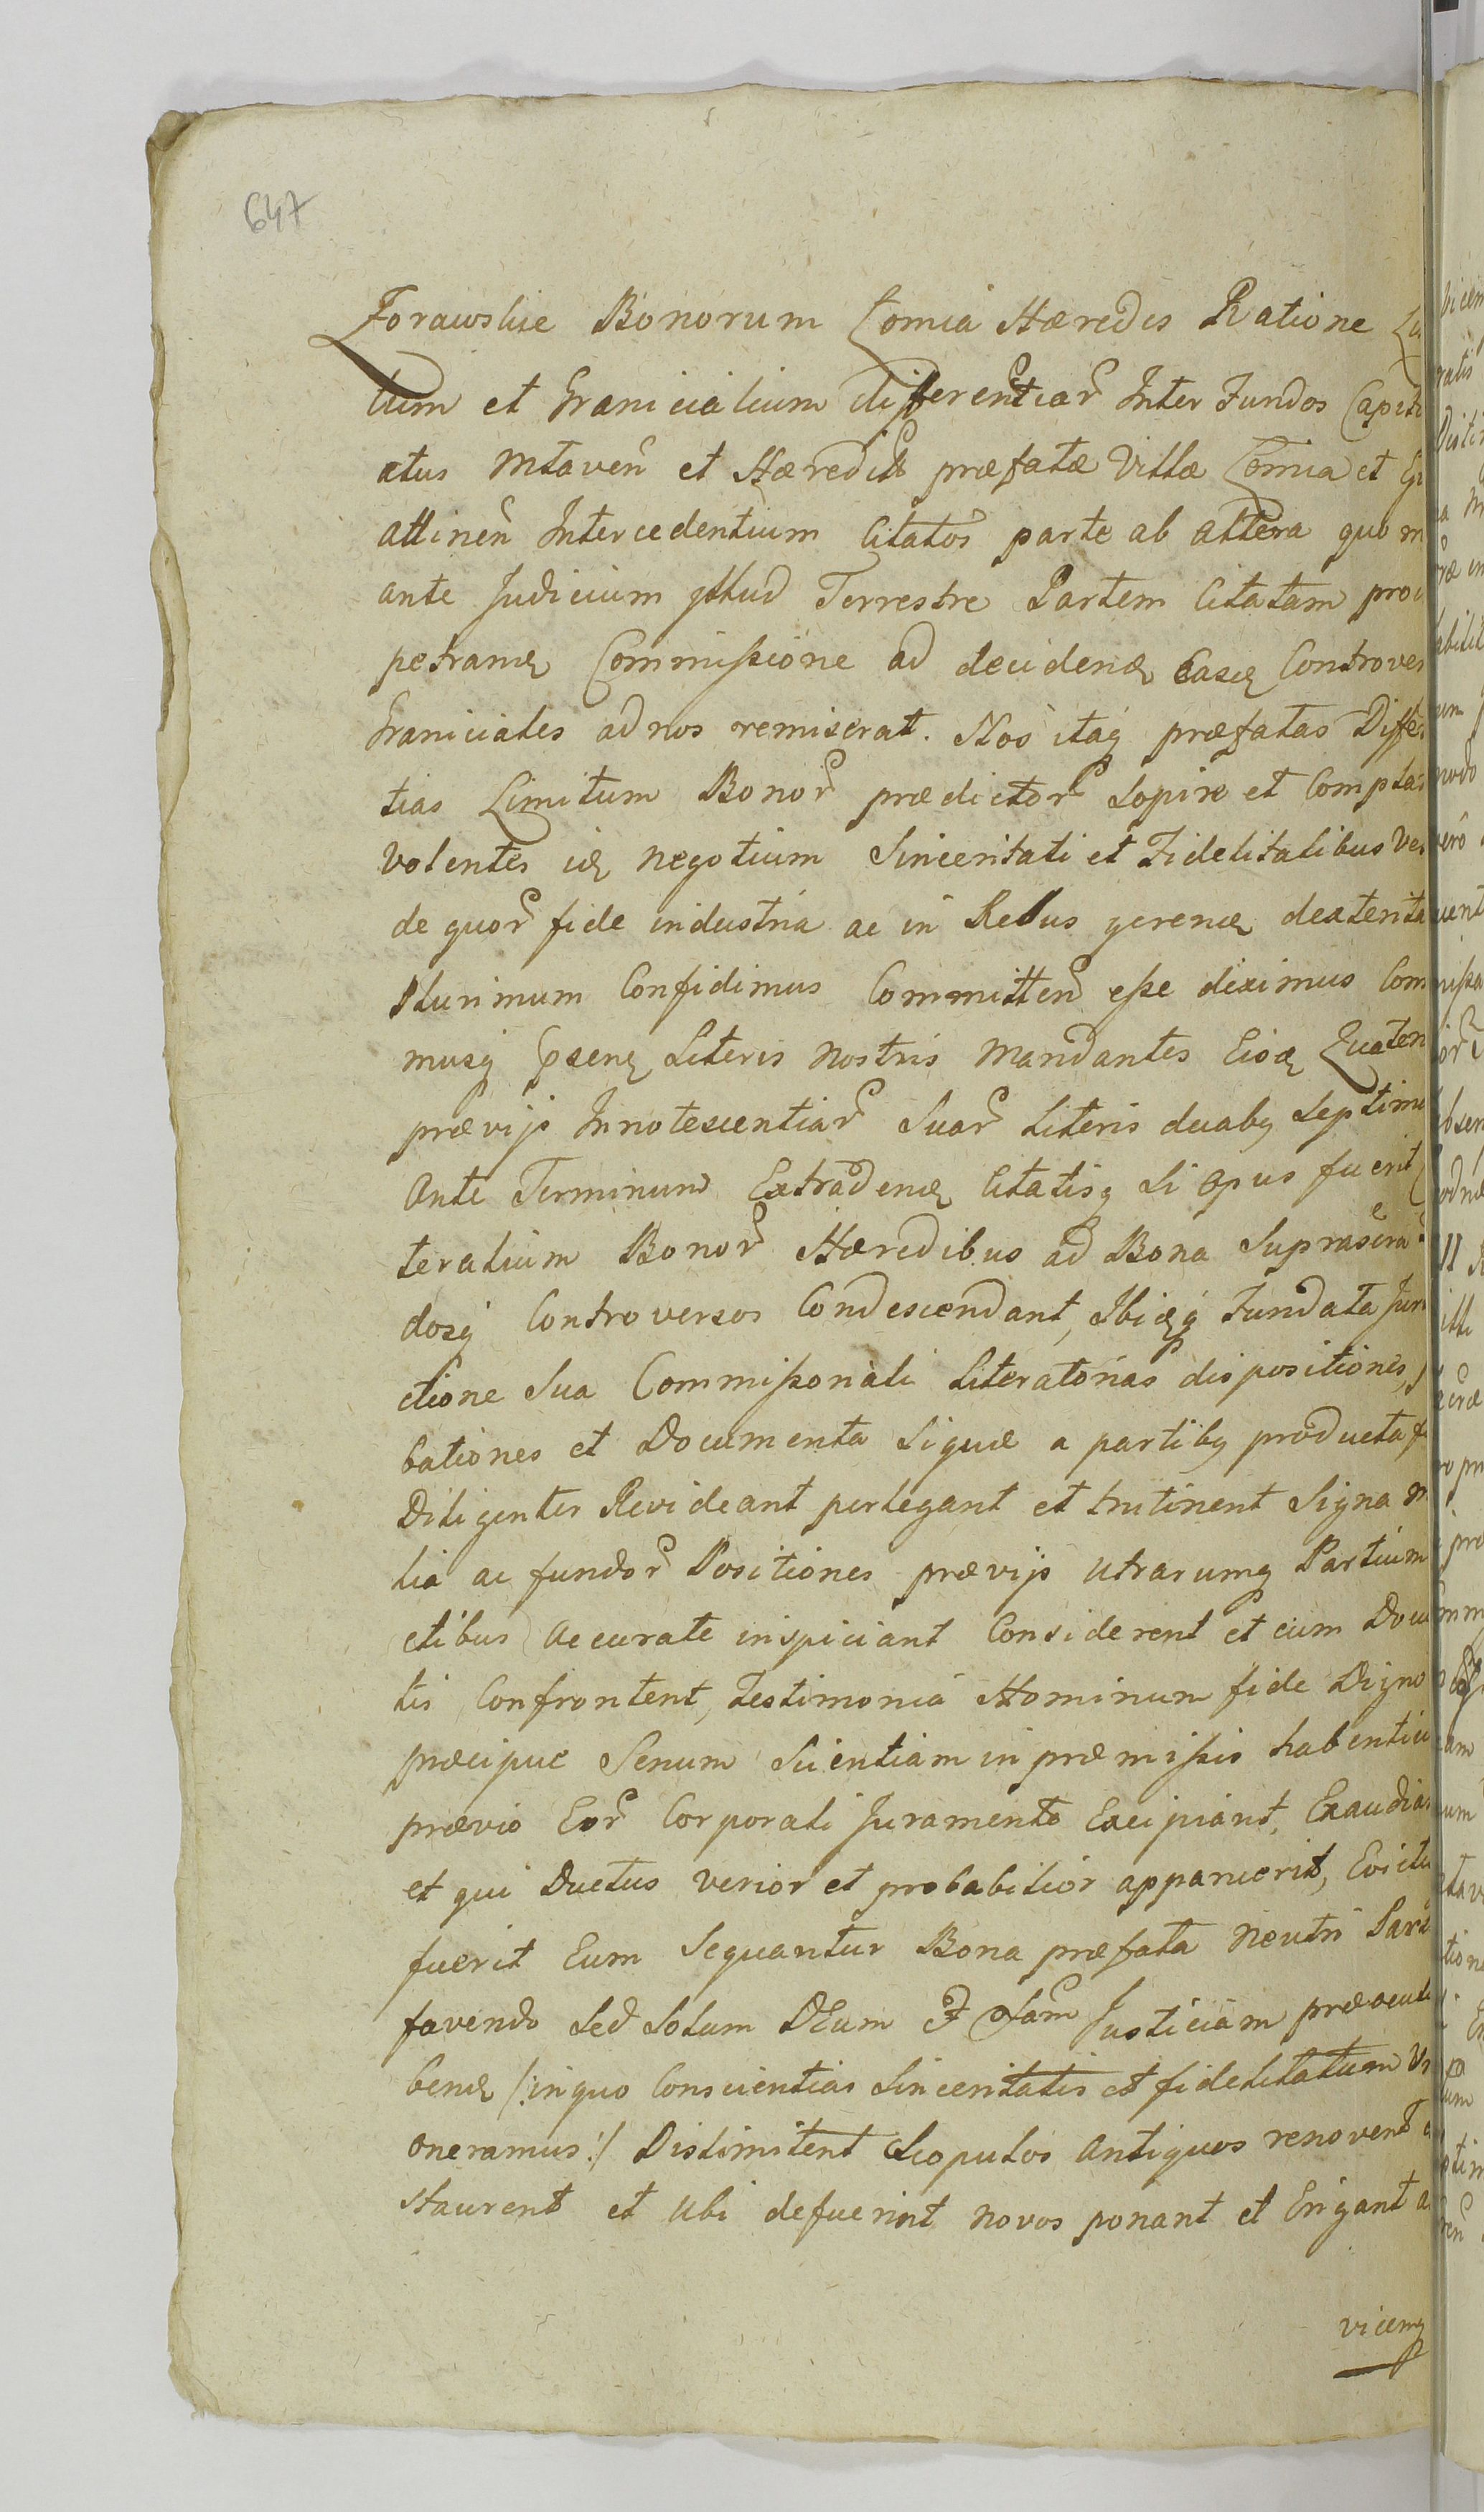 647
Zorawskie Bonorum Comia Hæredis Ratione
tum et Granicialium differentiar Inter Fundos Capit
atus Mlaven et Hæredit præfatæ Villæ Comia et
attinen Intercedentium Citatos parte ab altera quo m
ante Judicium illud Terrestre Partem Citatam pro
petramq Commissione ad decidenq Easq Controver
Graniciales ad nos remiserat. Nos itaq præfatas Diffe
tias Limitum Bonor prædictor Sopire et Compla
Volentes idq negotium Sinceritati et Fidelitatibus Ves
de quor fide industria ac in Rebus gerenq dexterita
Plurimum Confidimus Committen esse diximus Com
musq psenq Literis nostris Mandantes Eisq Quaten
prævijs Innotescentiar Suar Literis duabq Septima
Ante Terminum Extradenq Citatisq Si opus fuerit
teralium Bonor Hæredibus ad Bona Supra
dosq Controversos Condescendant, Ibiqq Fundata Juri
ctione Sua Commissionali Literatorias dispositiones,
bationes et Documenta Siquæ a partibq producta f
Diligenter Revideant perlegant et trutinent Signa
lia ac fundor Positiones prævijs Utrarumq Partium
ctibus Accurate inspiciant Considerent et cum Docu
tis Confrontent, Testimonia Hominum fide Digno
præcipue Senum Scientiam in præmissis habentiu
prævio Eor Corporali Juramento Excipiant, Exaudia
et qui Ductus verior et probabilior apparuerit, Evictu
fuerit Eum Sequantur Bona præfata Neutri Part
favendo Sed Solum DEum et Sam Justiciam præ ocul
benq /:in quo Conscientias Sinceritatis et fidelitatum
oneramus:/ Dislimitent Scopulos Antiquos renovent
staurent et Ubi defuerint novos ponant et Erigant a
vicemq